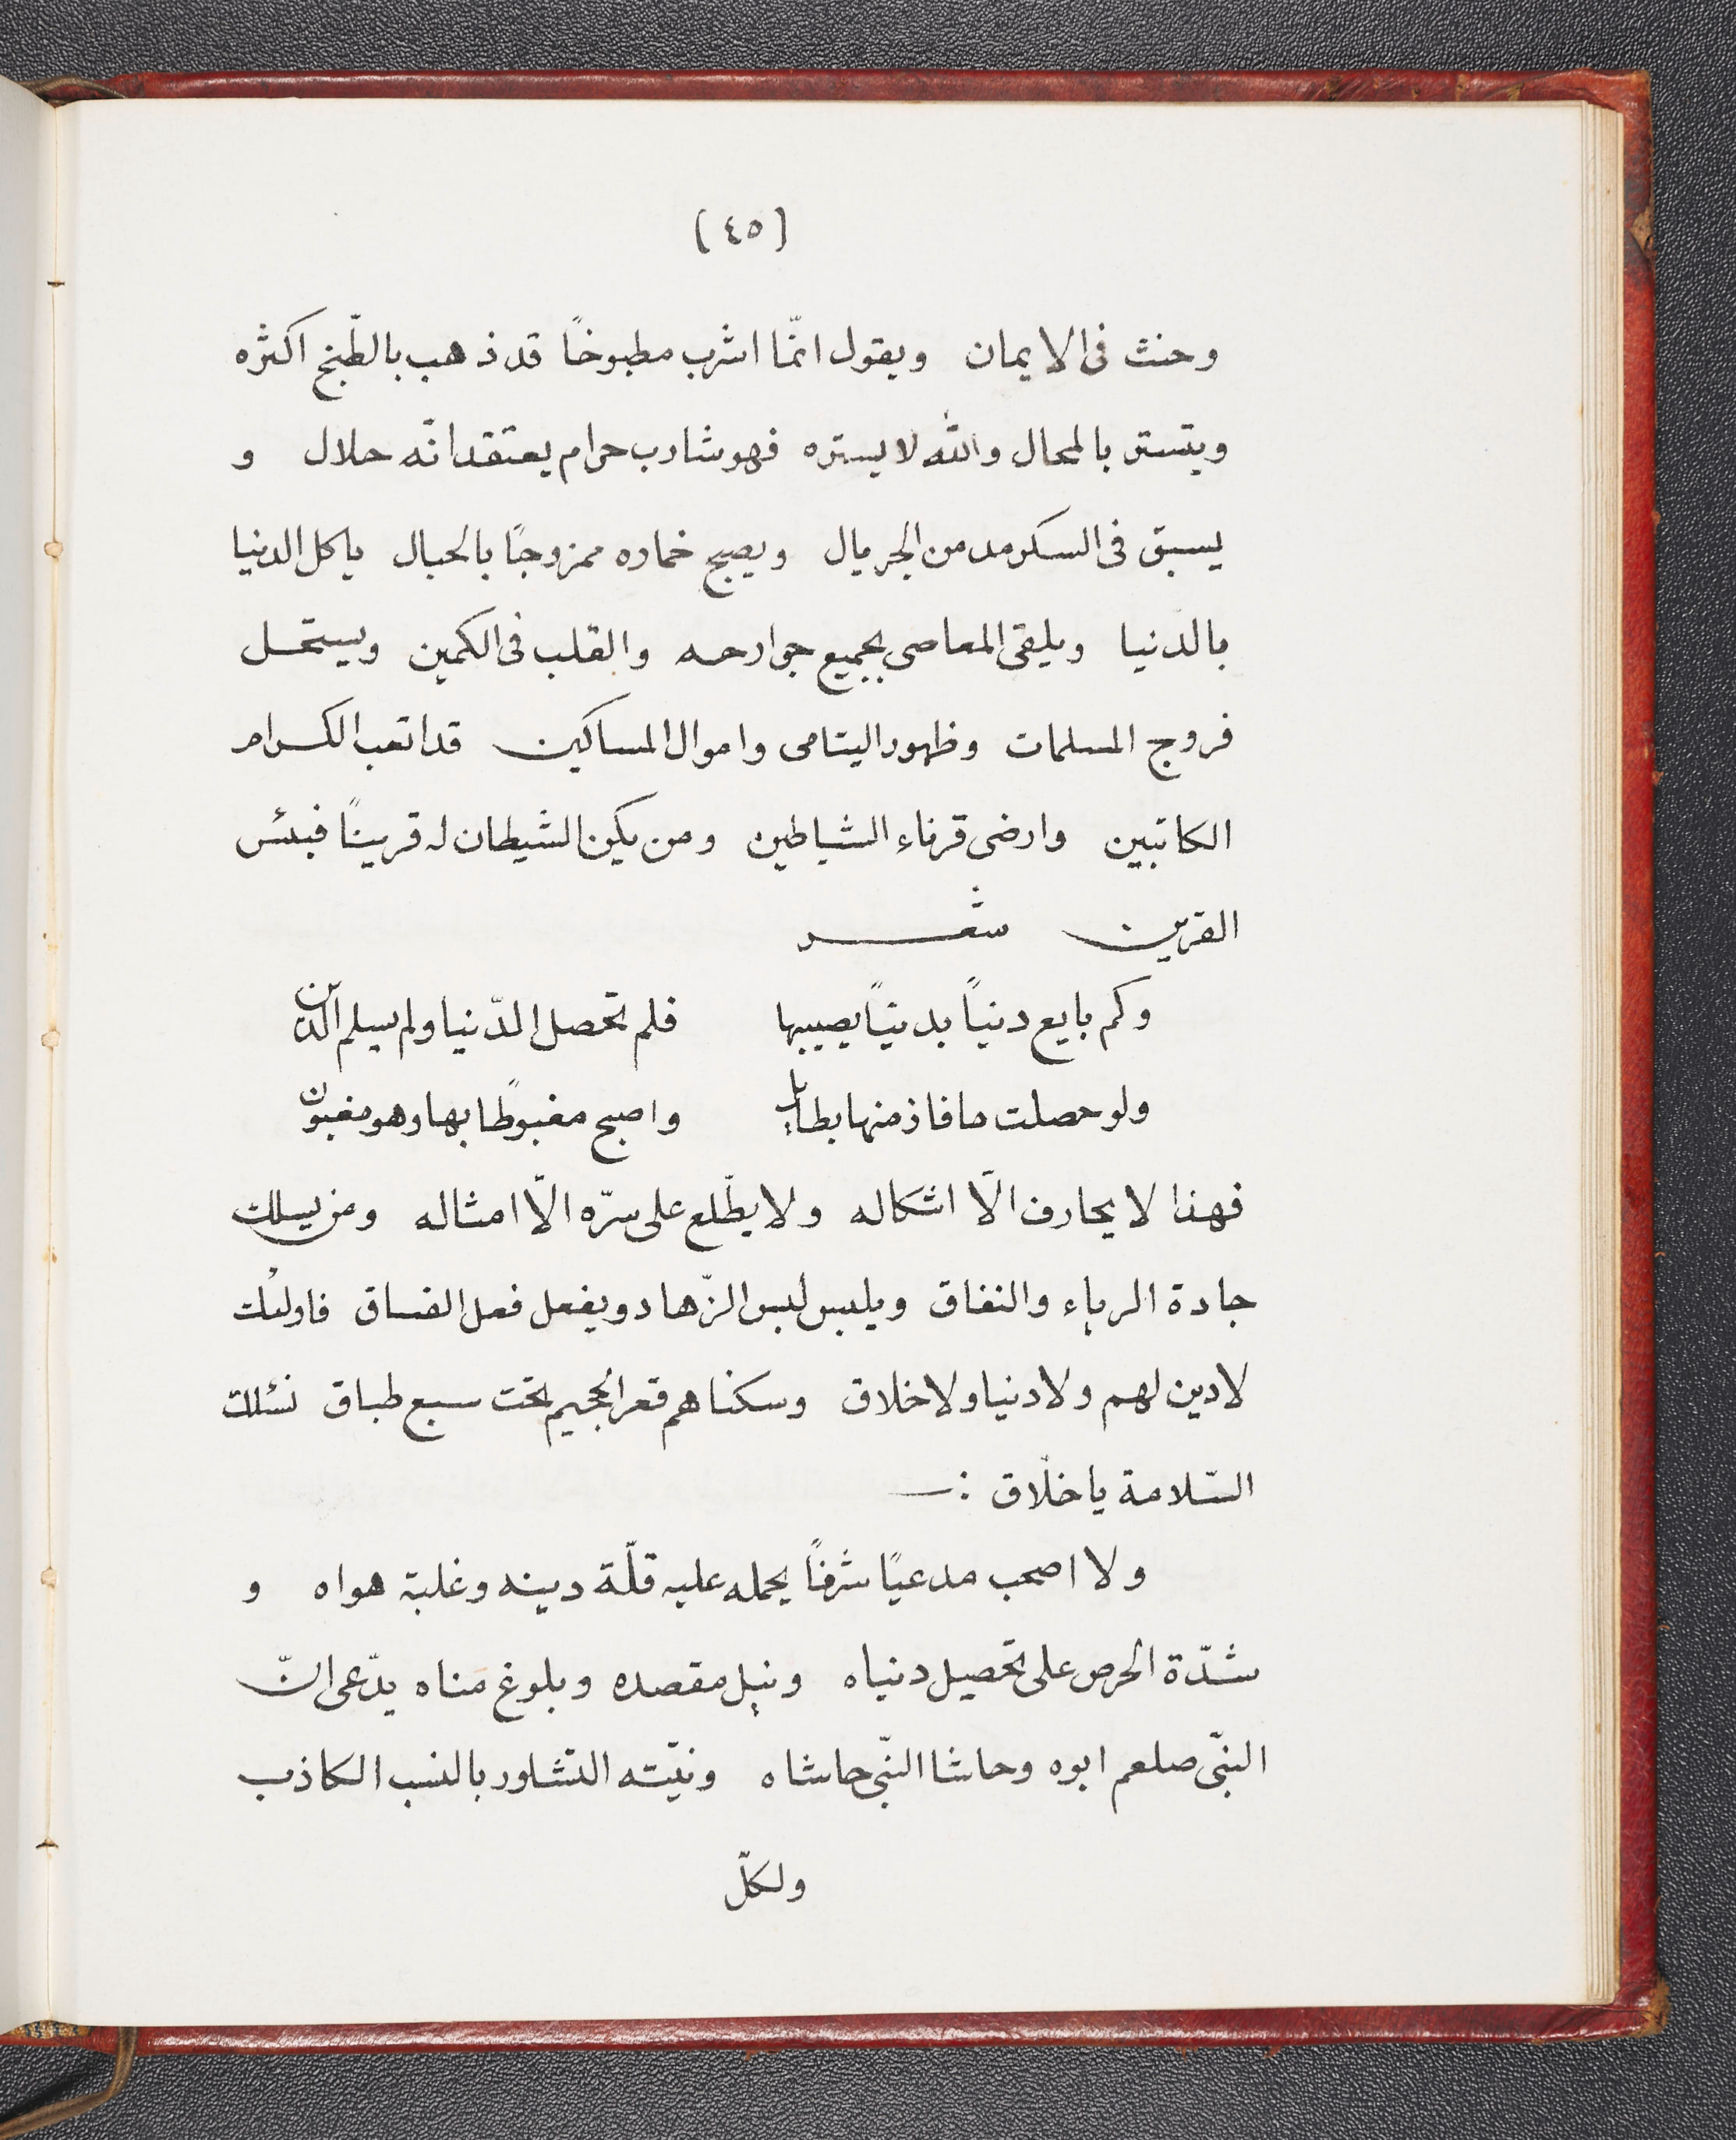 (٤٥)
وحنث فى الايمان ويقول انّما اشرب مطبوخًا قد ذهب بالطّبخ اكثره
ويتستر بالمحال والله لا يستره فهو شارب حرام يعتقد انّه حلال و
يسبق فى السكر مدمن الجريال ويصبح خماره ممزوجًا بالخبال ياكل الدنيا
بالدنيا ويلقى المعاصى بجميع جوارحه والقلب فى الكمين ويستحل
فروج المسلمات وظهور اليتامى واموال المساكين قد اتعب الكرام
الكاتبين وارضى قرناء الشياطين ومن يكن الشيطان له قرينًا فبئس
القرين شعر
وكم بايع دنيًا بدنيًا يصيبها فلم تحصل الدّنيا ولم يسلم الدّين
ولو حصلت ما فاز منها بطايل واصبح مغبوطًا بها وهو مغبون
فهذا لا يحارف الّا اشكاله ولا يطّلع على سرّه الّا امثاله ومن يسلك
جادة الرياء والنفاق ويلبس لبس الزّهاد ويفعل فعل الفساق فاولئك
لا دين لهم ولا دنيا ولا خلاق وسكناهم قعر الجحيم تحت سبع طباق نسئلك
السّلامة يا خلّاق :ـ
ولا اصحب مدعيًا شرفًا يحمله عليه قلّة دينه وغلبة هواه و
شدّة الحرص على تحصيل دنياه ونيل مقصده وبلوغ مناه يدّعى انّ
النبّى صلعم ابوه وحاشا النبّى حاشاه ونيّته التشاور بالنسب الكاذب
ولكلّ